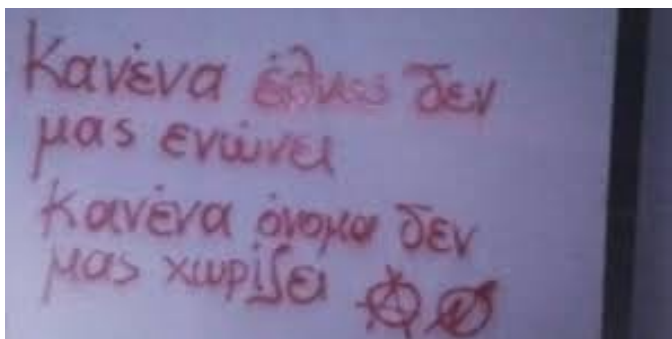 Κανένα έθνος δεν
μας ενώνει
Κανένα όνομα δεν
μας χωρίζει